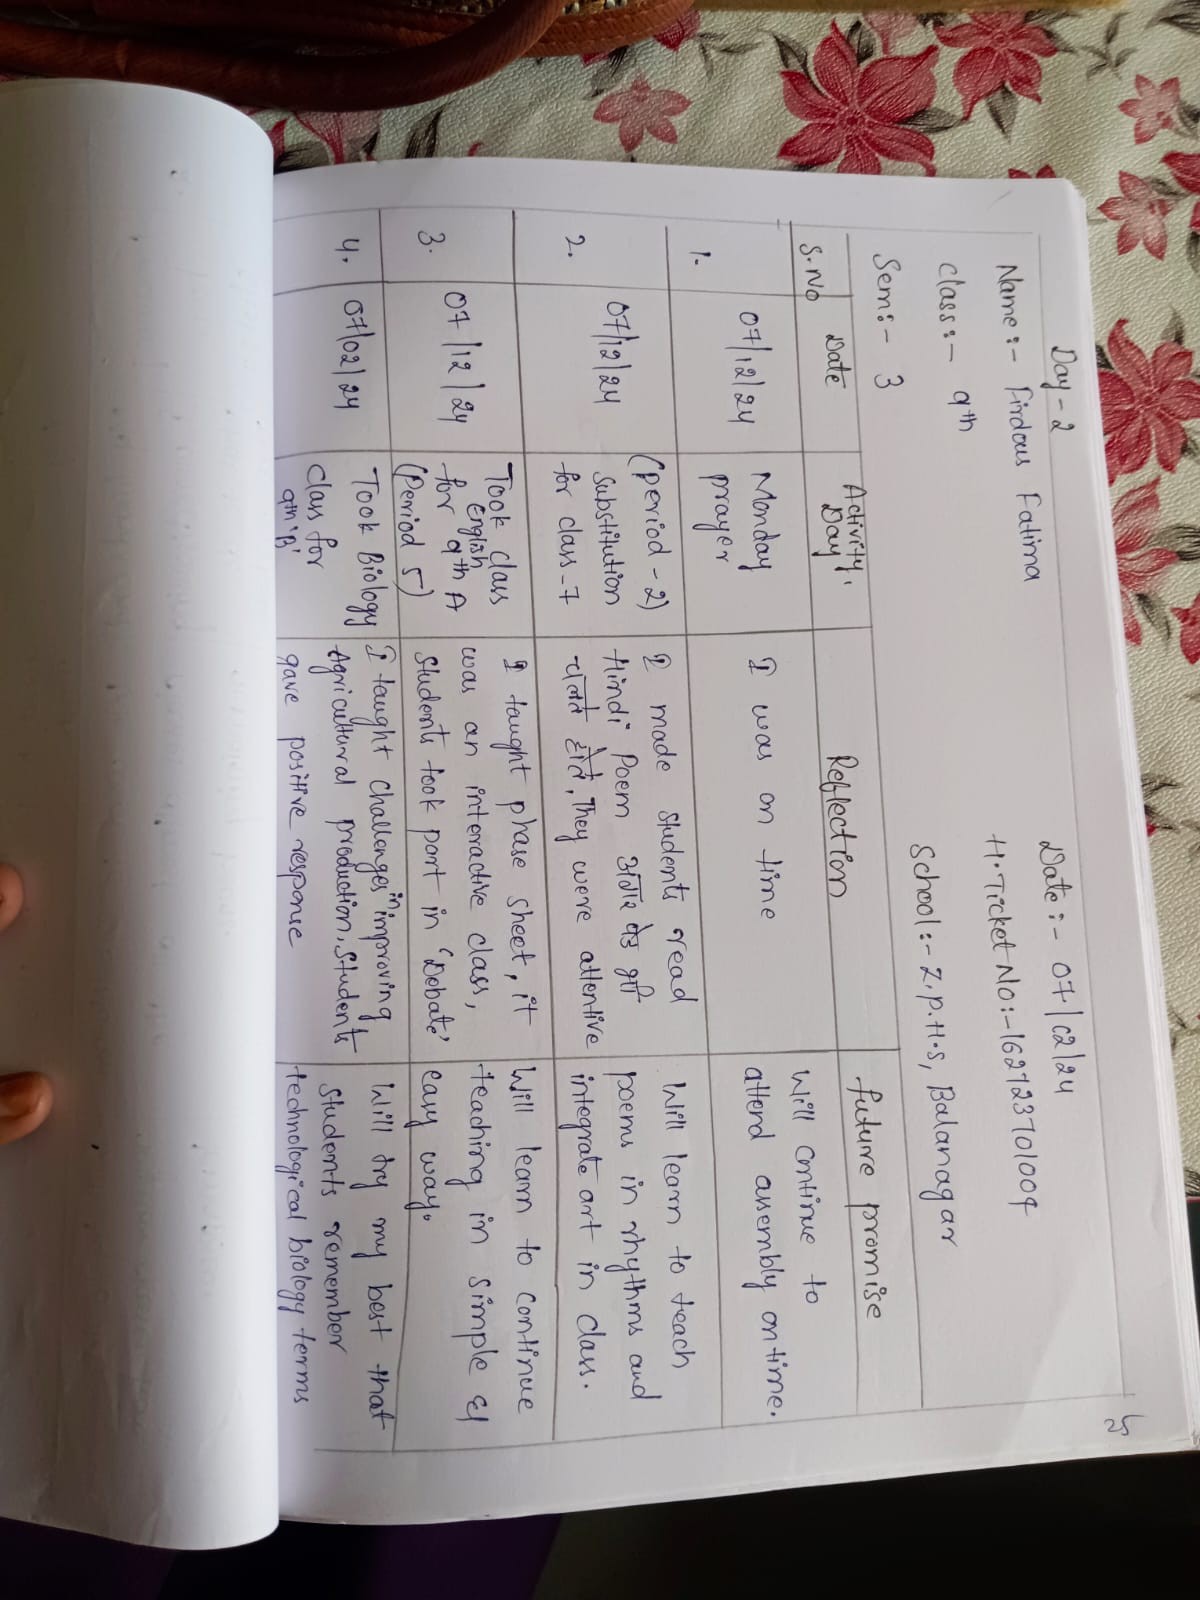 25
Day-2
Date:- 07/02/24
Name:- Firdous Fatima
H.Ticket No:-162723701009
Class:- 9th
School:- Z.P.H.S, Balanagar
Sem:- 3
S.No
Date
Activity,
Day
Reflection
future promise
1.
07/12/24
Monday
prayer
I was on time
Will continue to
attend assembly on time.
2.
07/12/24
(period-2)
substitution
for class-7
I made students read
Hindi Poem
They were attentive
Will learn to teach
poems in rhythms and
integrate art in class.
3.
07/12/24
Took class
English
for 9th A
(Period 5)
I taught phase sheet, it
was an interactive class,
students took part in 'Debate'
Will learn to continue
teaching in simple &
easy way.
4.
07/02/24
Took Biology
class for
9th 'B'
I taught challenges in improving
Agricultural production, students
gave positive response
Will try my best that
students remember
technological biology terms